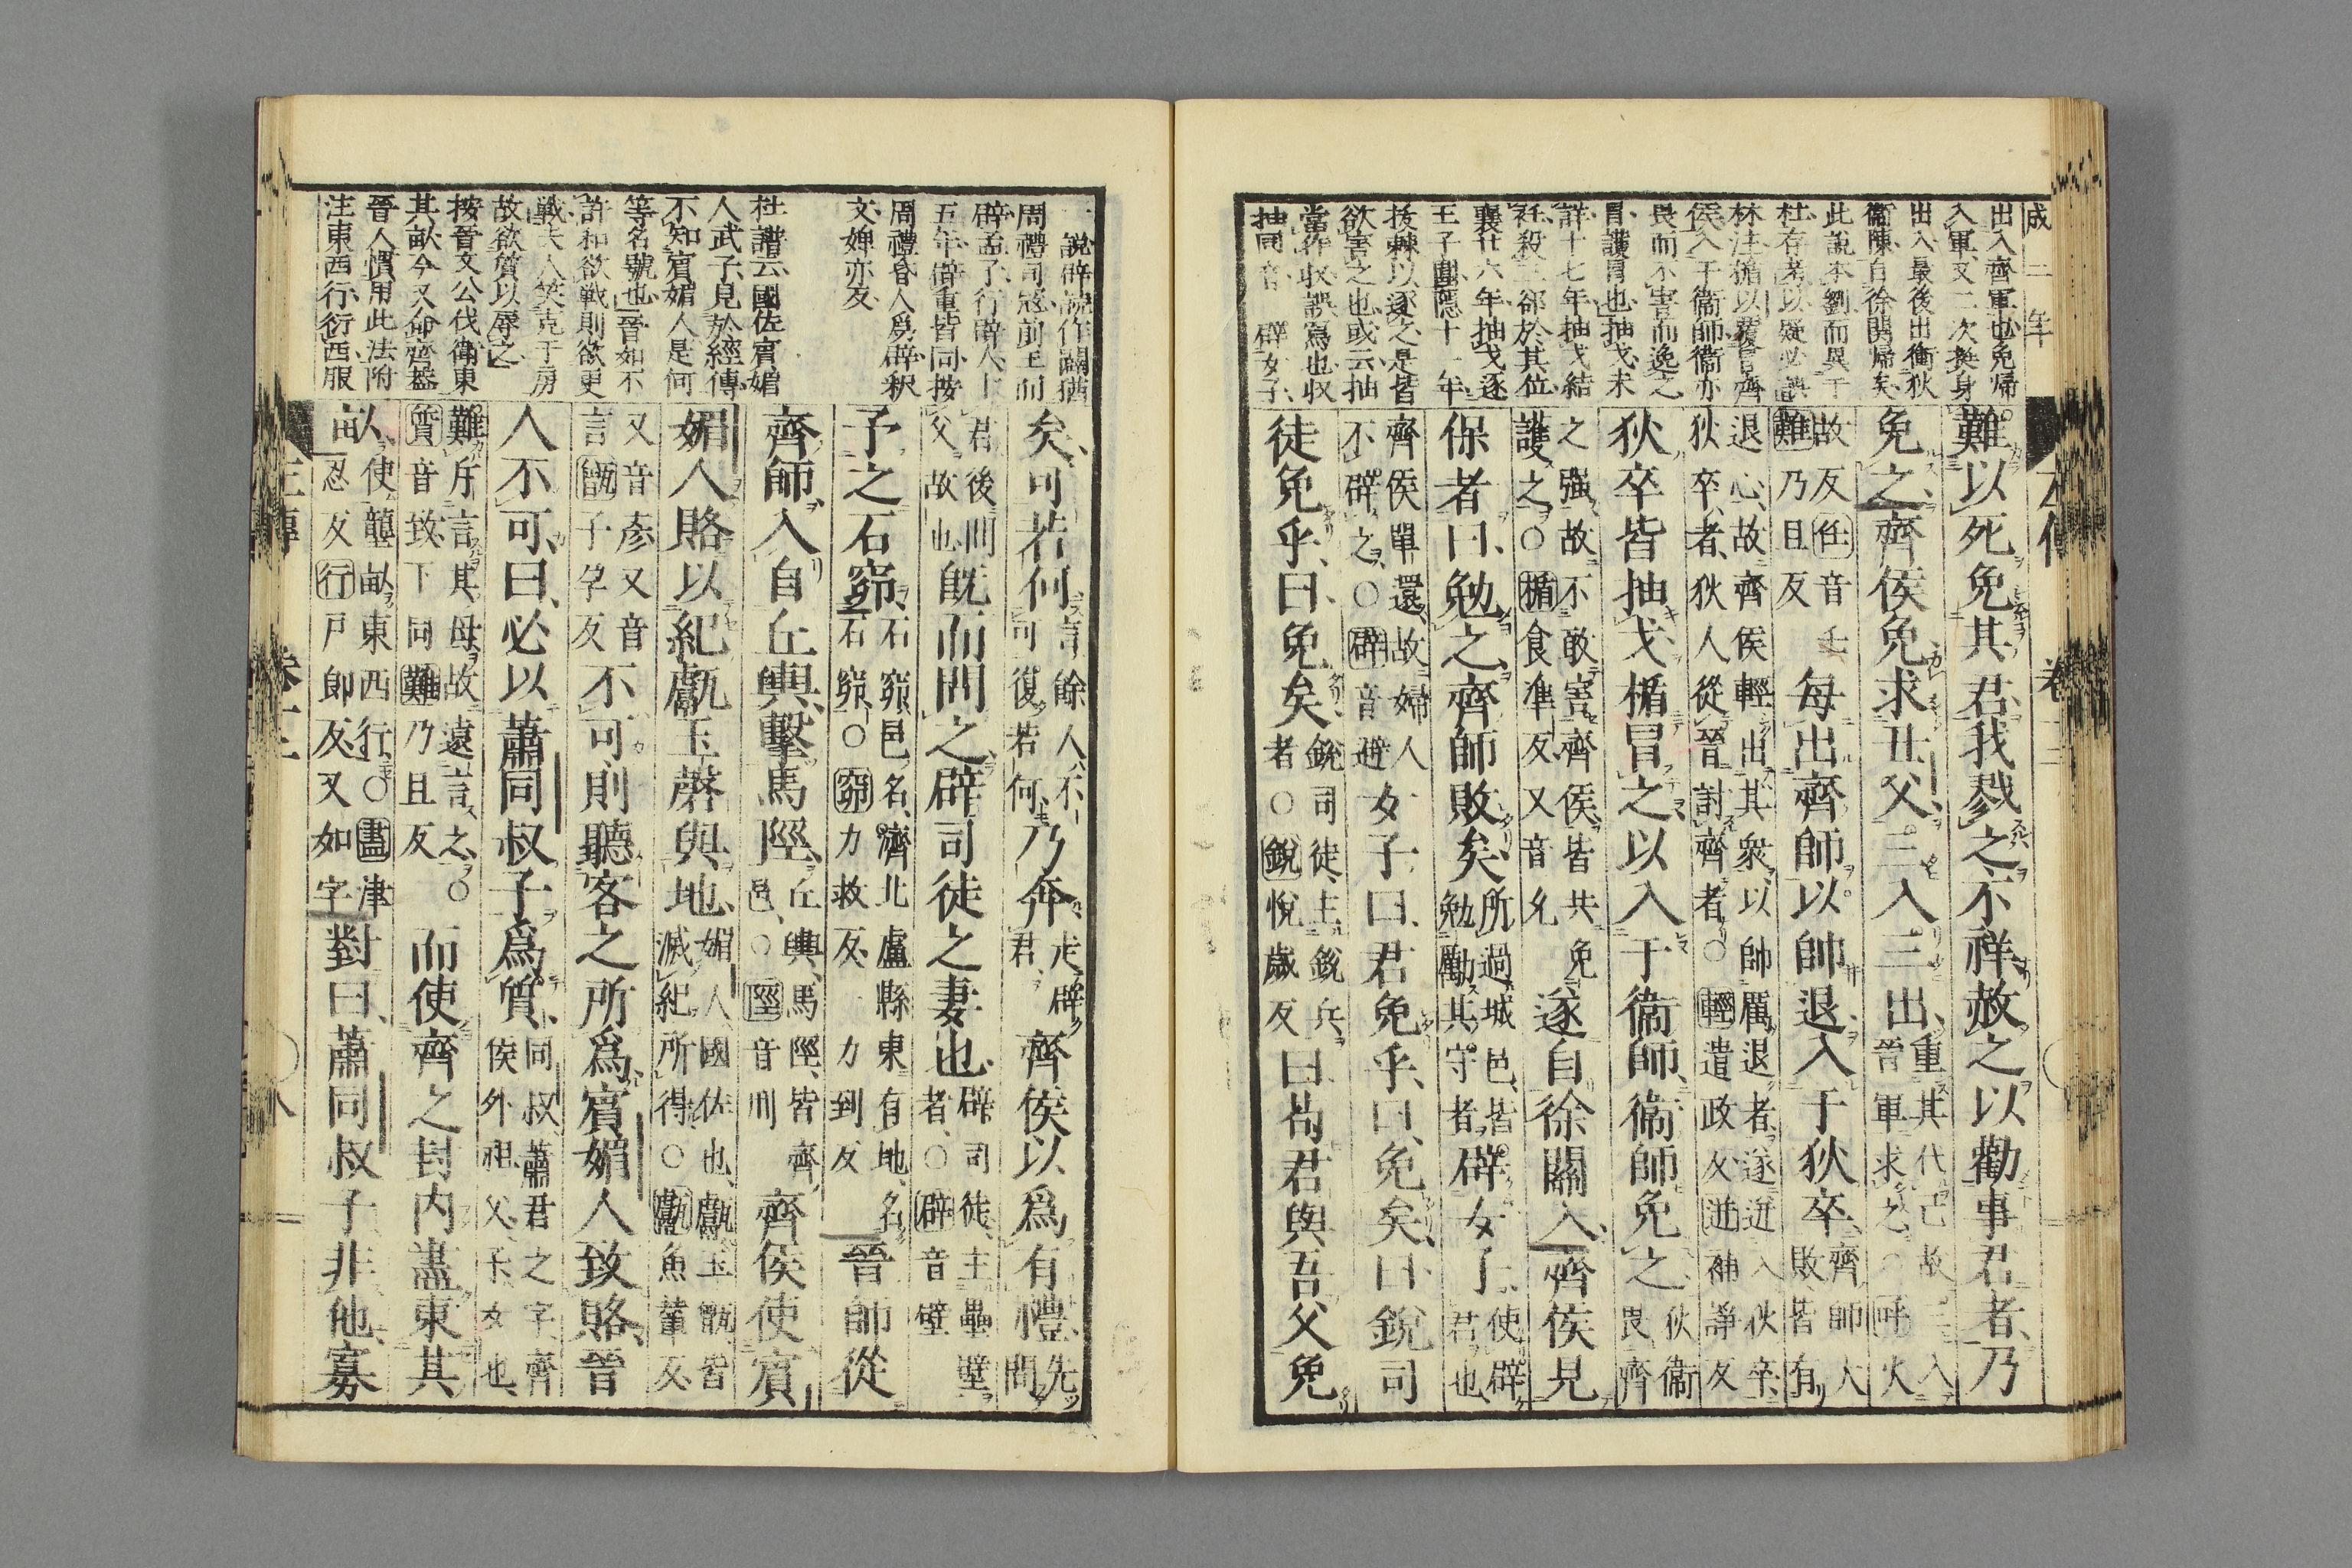 成二年
出入齊軍也免帰
入軍又二次挺身
出入最後出衛狄
衛陳自徐関帰矣
此説本劉而異于
杜存者以疑必與
林注楯以覆冒齊
侯入于衛師衛亦
畏而不害而逸之
冒護冐也抽戈未
詳十七年抽戈結
衽殺三郤於其位
襄廿六年抽戈逐
王子圍隱十一年
抜棘以逐之是皆
欲害之也或云抽
當作収誤寫也収
抽同音 辟女子
左傳 卷十二
難以死免其君我戮之不祥赦之以勸事君者乃
免之齊侯免求丑父三入三出重其代己故三入晉軍求之○呼火
故反任音壬難乃且反每出齊師以帥退入于狄卒齊師大敗皆有
退心故齊侯輕出其衆以帥厲退者遂迸入狄卒狄卒者狄人從晉討齊者○輕遣政反迸補諍反
狄卒皆抽戈楯冒之以入于衛師衛師免之狄衛畏齊
之強故不敢害齊侯皆共免護之○楯食準反又音允遂自徐關入齊侯見
保者曰勉之齊師敗矣所過城邑皆勉勵其守者辟女子使辟君也
齊侯單還故婦人不辟之○辟音避女子曰君免乎曰免矣曰銳司
徒免乎曰免矣銳司徒主銳兵者○銳悅歲反曰苟君與吾父免
一說辟說作闢猶
周禮司冦前王而
辟孟子行辟人卄
五年辟重皆同按
周禮昏人爲辟釈
文婢亦反
杜譜云國佐賓媚
人武子見於經傳
不知賓媚人是何
等名號也晉如不
許和欲戰則欲更
戰夫人笑克于房
故欲質以辱之
按晉文公伐衛東
其畝今又命齊葢
晉人慣用此法附
注東西行行西服
矣可若何言餘人不可復若何乃奔走辟君齊侯以爲有禮先問
君後問父故也既而問之辟司徒之妻也辟司徒主壘壁者○辟音壁
予之石窌石窌邑名濟北盧縣東有地名石窌○窌力救反力到反晉師從
齊師入自丘輿擊馬陘丘輿馬陘皆齊邑○陘音刑齊侯使賓
媚人賂以紀甗玉磬與地媚人國佐也甗玉甑皆滅紀所得○甗魚輦反
又音彦又音言甑子孕反不可則聽客之所爲賓媚人致賂晉
人不可曰必以蕭同叔子爲質同叔蕭君之字齊侯外祖父子女也
難斥言其母故遠言之○質音致下同難乃且反而使齊之封内盡東其
畝使壟畝東西行○盡津忍反行戸郎反又如字對曰蕭同叔子非他寡
左傳 卷十二 八